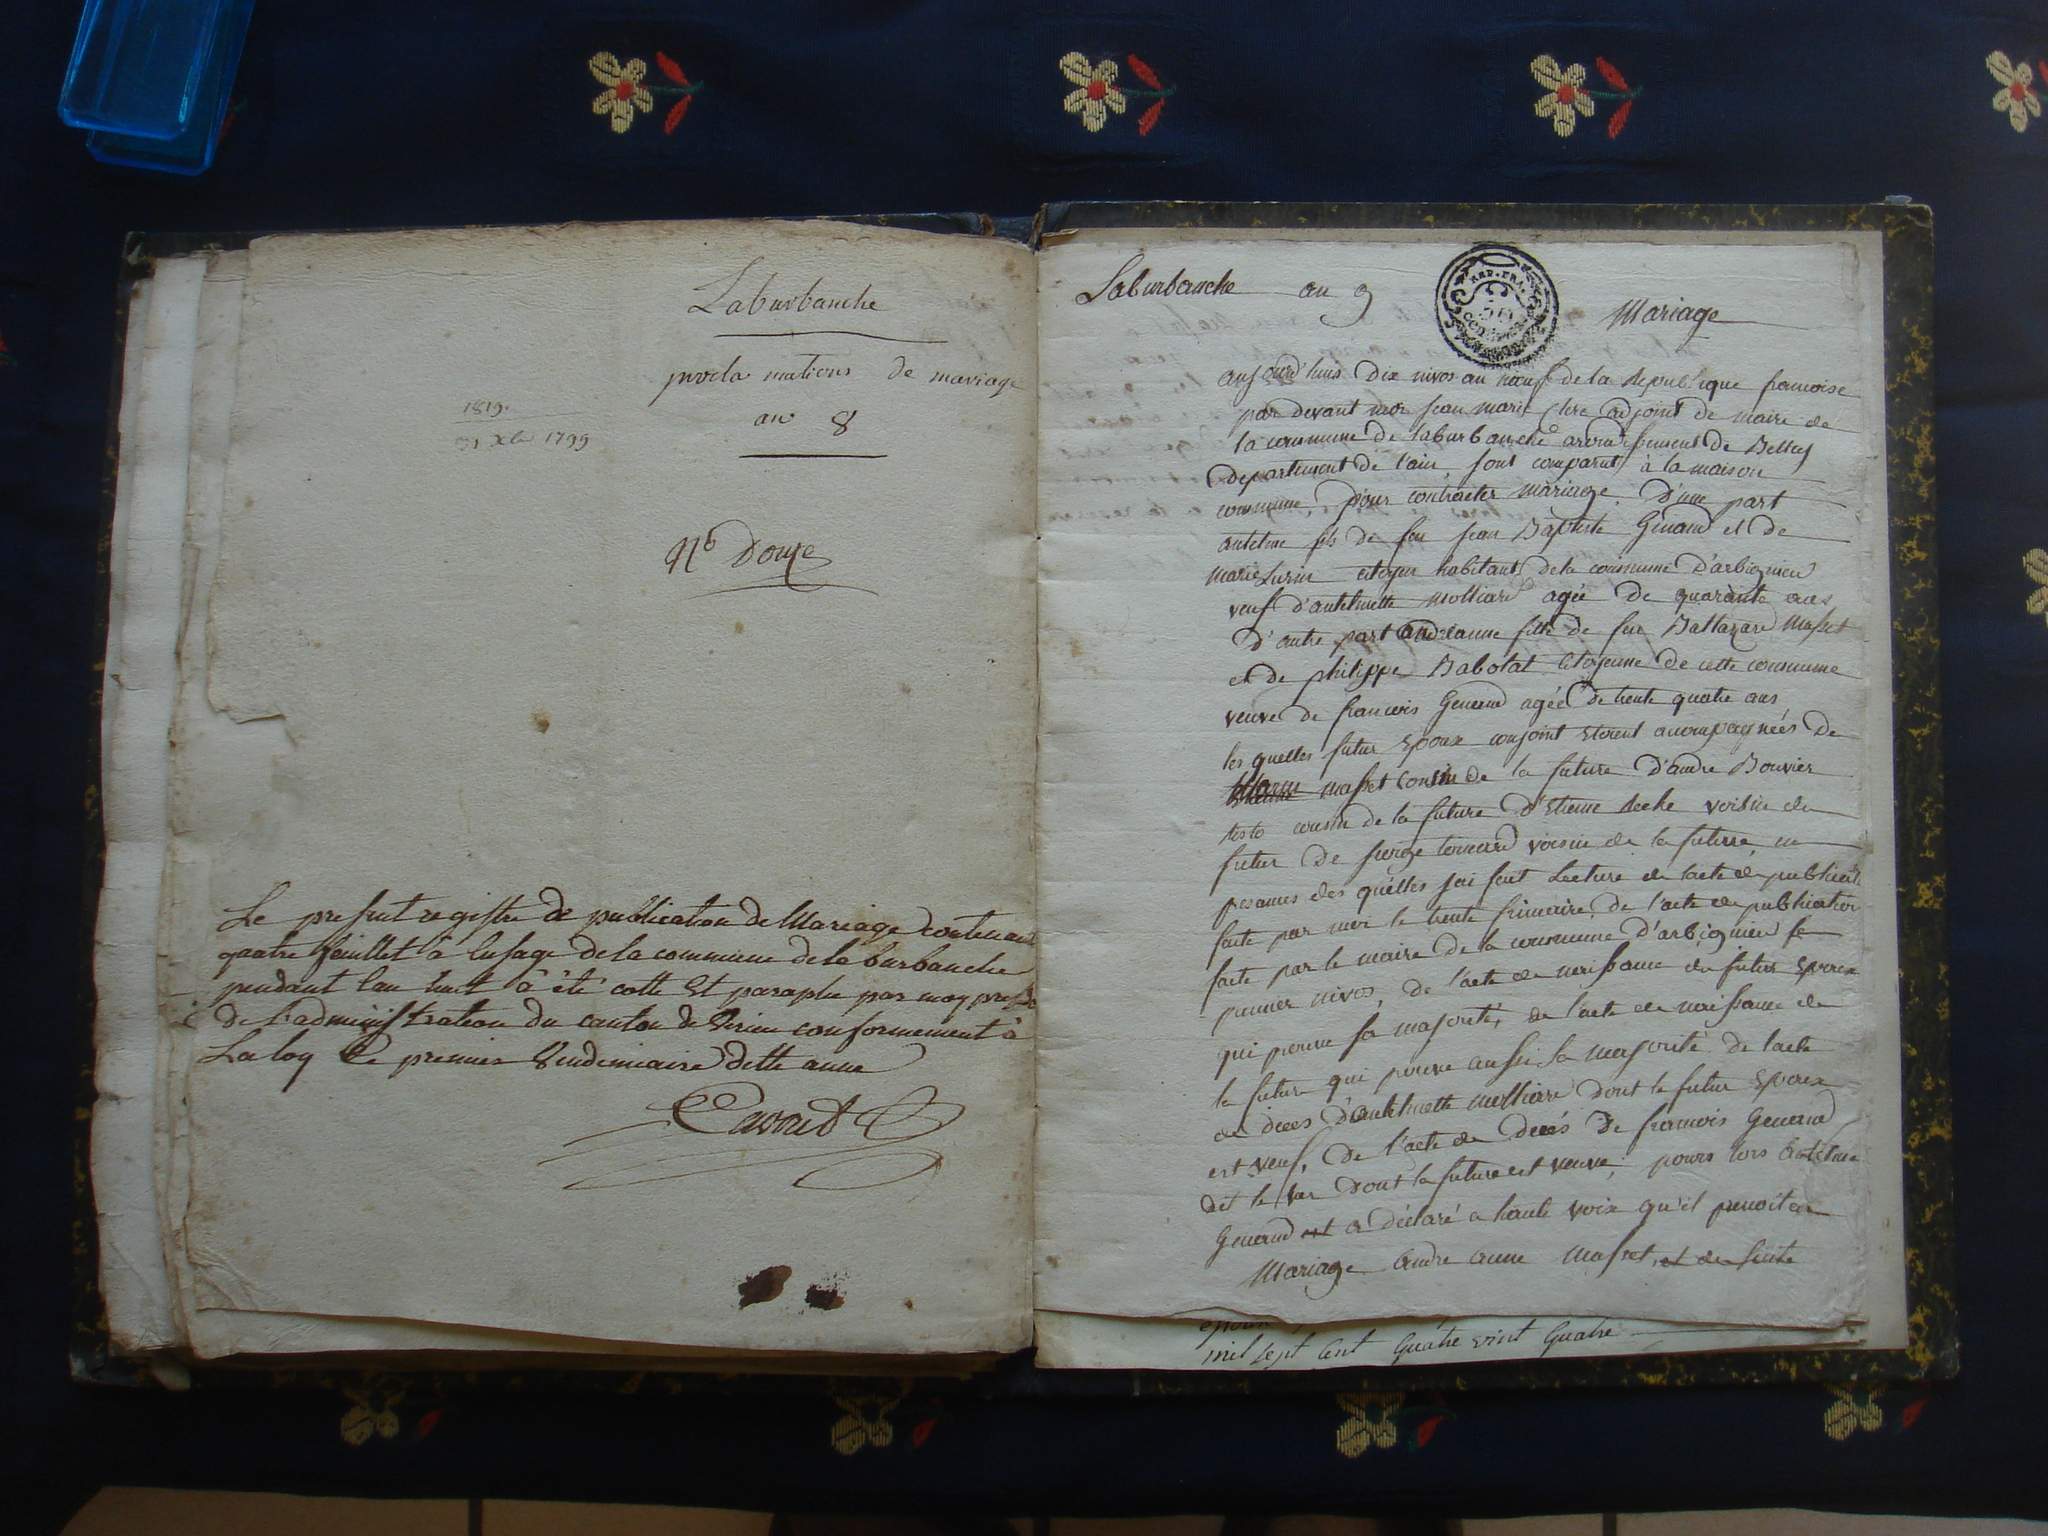 Laburbanche
proclamations de mariage
an 8
1819.
31 Xbre 1799
No Douze
Le present registre de publication de Mariage contenant
quatre feuillet à lusage de la commune de la burbanche
pendant lan huit à été cotté Et paraphé par moy presdt
de l'administration du canton de Virieu conformement à
La loy Le premier Vendemiaire ditte anneé
Laburbanche an 9
REP. FRA.
Mariage
aujourd'huis Dix nivos an nœuf de la Republique francoise
par devant moi jean marie adjoint de maire de
la commune de laburbanche arondissement de Belley
departement de l'ain, sont comparut à la maison
commune, pour contracter mariage, d'une part
antelme fils de feu jean Baptiste Genaud et de
marie Lurin citoyen habitant de la commune D'arbignieu
veuf d'antelmette molliard agée de quarante ans
D'autre part andréanne fille de feu Baltazard Masset
et de philippe Babolat Citoyenne de cette commune
veuve de francois Genaud agée de trente quatre ans
les quelles futur Epoux conjoint Etoient accompagnées de
masset cousin de la future d'andre Bouvier
cousin de la future d'Etienne voisin du
futur de voisin de la future, en
presances des quelles j'ai fait Lecture de lacte de publication
faite par moi le trente frimaire, de l'acte de publication
faite par le maire de la commune D'arbignieu le
premier nivos, de l'acte de naissance du futur Epoux
qui prouve sa majorité, de l'acte de naissance de
la future qui prouve aussi sa majorité de l'acte
de deces d'antelmette molliard dont le futur Epoux
est veuf, de l'acte de deces de francois Genaud
dit le dont la future est veuve, pours lors Antelme
Genaud et a déclaré a haute voix qu'il prenoit en
Mariage andre anne masset, et de suite
mil sept Cent Quatre vint Quatre